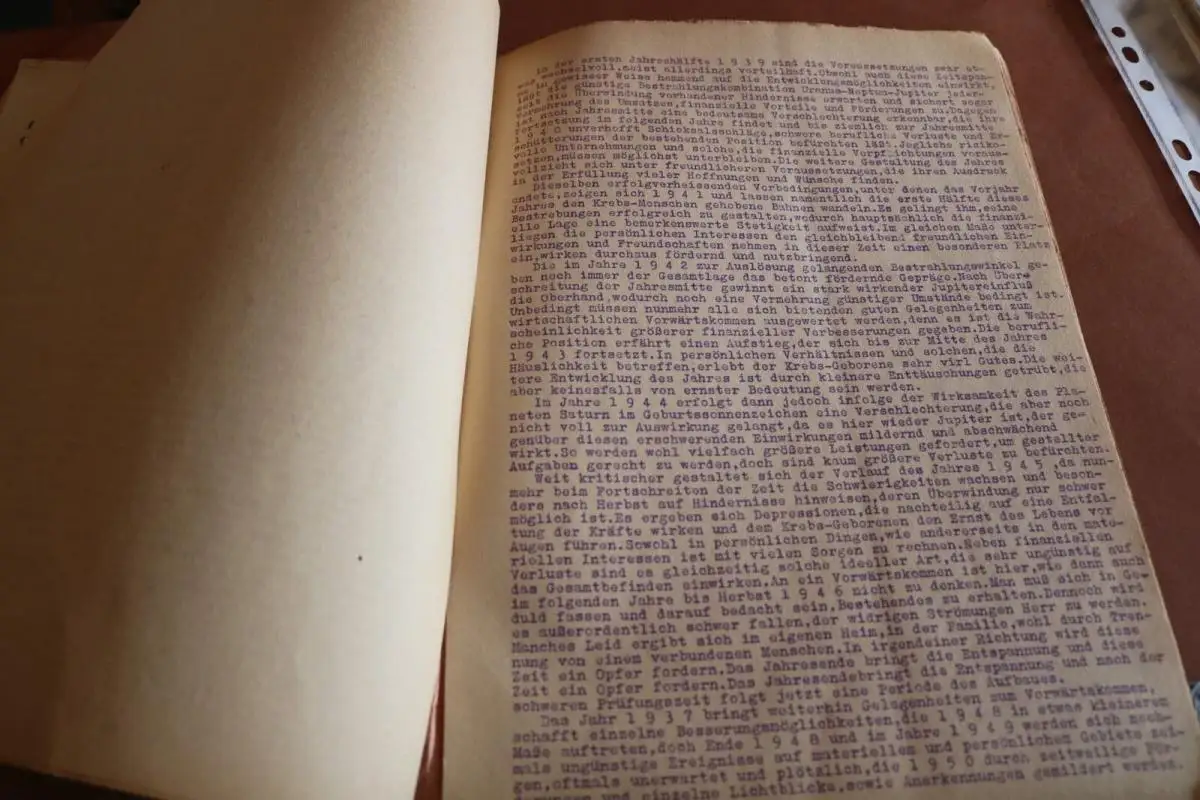 In der ersten Jahreshälfte 1 9 3 9 sind die Voraussetzungen zwar et-
was wechselvoll, meist allerdings vorteilhaft. Obwohl auch diese Zeitspan-
in gewisser Weise hemmend auf die Entwicklungsmöglichkeiten einwirkt,
läßt die günstige Bestrahlungskombination Uranus-Neptun-Jupiter jeder-
zeit die Überwindung vorhandener Hindernisse erwarten und sichert sogar
Vermehrung des Umsatzes, finanzielle Vorteile und Förderungen zu. Dagegen
ist nach Jahresmitte eine bedeutsame Verschlechterung erkennbar, die ihre
Fortsetzung im folgenden Jahre findet und bis ziemlich zur Jahresmitte
1 9 4 0 unverhofft Schicksalsschläge, schwere berufliche Verluste und Er-
schütterungen der bestehenden Position befürchten läßt. Jegliche risiko-
volle Unternehmungen und solche, die finanzielle Verpflichtungen voraus-
setzen, müssen möglichst unterbleiben. Die weitere Gestaltung des Jahres
vollzieht sich unter freundlicheren Voraussetzungen, die ihren Ausdruck
in der Erfüllung vieler Hoffnungen und Wünsche finden.
Dieselben erfolgverheissenden Vorbedingungen, unter denen das Vorjahr
endete, zeigen sich 1 9 4 1 und lassen namentlich die erste Hälfte dieses
Jahres den Krebs-Menschen gehobene Bahnen wandeln. Es gelingt ihm, seine
Bestrebungen erfolgreich zu gestalten, wodurch hauptsächlich die finanzi-
elle Lage eine bemerkenswerte Stetigkeit aufweist. Im gleichen Maße unter-
liegen die persönlichen Interessen den gleichbleibend freundlichen Ein-
wirkungen und Freundschaften nehmen in dieser Zeit einen besonderen Platz
ein, wirken durchaus fördernd und nutzbringend.
Die im Jahre 1 9 4 2 zur Auslösung gelangenden Bestrahlungswinkel ge-
ben noch immer der Gesamtlage das betont fördernde Gepräge. Nach Über-
schreitung der Jahresmitte gewinnt ein stark wirkender Jupitereinfluß
die Oberhand, wodurch noch eine Vermehrung günstiger Umstände bedingt ist.
Unbedingt müssen nunmehr alle sich bietenden guten Gelegenheiten zum
wirtschaftlichen Vorwärtskommen ausgewertet werden, denn es ist die Wahr-
scheinlichkeit größerer finanzieller Verbesserungen gegeben. Die berufli-
che Position erfährt einen Aufstieg, der sich bis zur Mitte des Jahres
1 9 4 3 fortsetzt. In persönlichen Verhältnissen und solchen, die die
Häuslichkeit betreffen, erlebt der Krebs-Geborene sehr virl Gutes. Die wei-
tere Entwicklung des Jahres ist durch kleinere Enttäuschungen getrübt, die
aber keinesfalls von ernster Bedeutung sein werden.
Im Jahre 1 9 4 4 erfolgt dann jedoch infolge der Wirksamkeit des Pla-
neten Saturn im Geburtssonnenzeichen eine Verschlechterung, die aber noch
nicht voll zur Auswirkung gelangt, da es hier wieder Jupiter ist, der ge-
genüber diesen erschwerenden Einwirkungen mildernd und abschwächend
wirkt. So werden wohl vielfach größere Leistungen gefordert, um gestellter
Aufgaben gerecht zu werden, doch sind kaum größere Verluste zu befürchten.
Weit kritischer gestaltet sich der Verlauf des Jahres 1 9 4 5 , da nun-
mehr beim Fortschreiten der Zeit die Schwierigkeiten wachsen und beson-
ders nach Herbst auf Hindernisse hinweisen, deren Überwindung nur schwer
möglich ist. Es ergeben sich Depressionen, die nachteilig auf eine Entfal-
tung der Kräfte wirken und dem Krebs-Geborenen den Ernst des Lebens vor
Augen führen. Sowohl in persönlichen Dingen, wie andererseits in den mate-
riellen Interessen ist mit vielen Sorgen zu rechnen. Neben finanziellen
Verluste sind es gleichzeitig solche ideeller Art, die sehr ungünstig auf
das Gesamtbefinden einwirken. An ein Vorwärtskommen ist hier, wie dann auch
im folgenden Jahre bis Herbst 1 9 4 6 nicht zu denken. Man muß sich in Ge-
duld fassen und darauf bedacht sein, Bestehendes zu erhalten. Dennoch wird
es außerordentlich schwer fallen, der widrigen Strömungen Herr zu werden.
Manches Leid ergibt sich im eigenen Heim, in der Familie, wohl durch Tren-
nung von einem verbundenen Menschen. In irgendeiner Richtung wird diese
Zeit ein Opfer fordern. Das Jahresende bringt die Entspannung und diese
Zeit ein Opfer fordern. Das Jahresendebringt die Entspannung und nach der
schweren Prüfungszeit folgt jetzt eine Periode des Aufbaues.
Das Jahr 1 9 3 7 bringt weiterhin Gelegenheiten zum Vorwärtskommen,
schafft einzelne Besserungsmöglichkeiten, die 1 9 4 8 in etwas kleinerem
Maße auftreten, doch Ende 1 9 4 8 und im Jahre 1 9 4 9 werden sich noch-
mals ungünstige Ereignisse auf materiellem und persönlichem Gebiete zei-
gen, oftmals unerwartet und plötzlich, die 1 9 5 0 durch zeitweilige För-
derungen und einzelne Lichtblicke, sowie Anerkennungen gemildert werden.